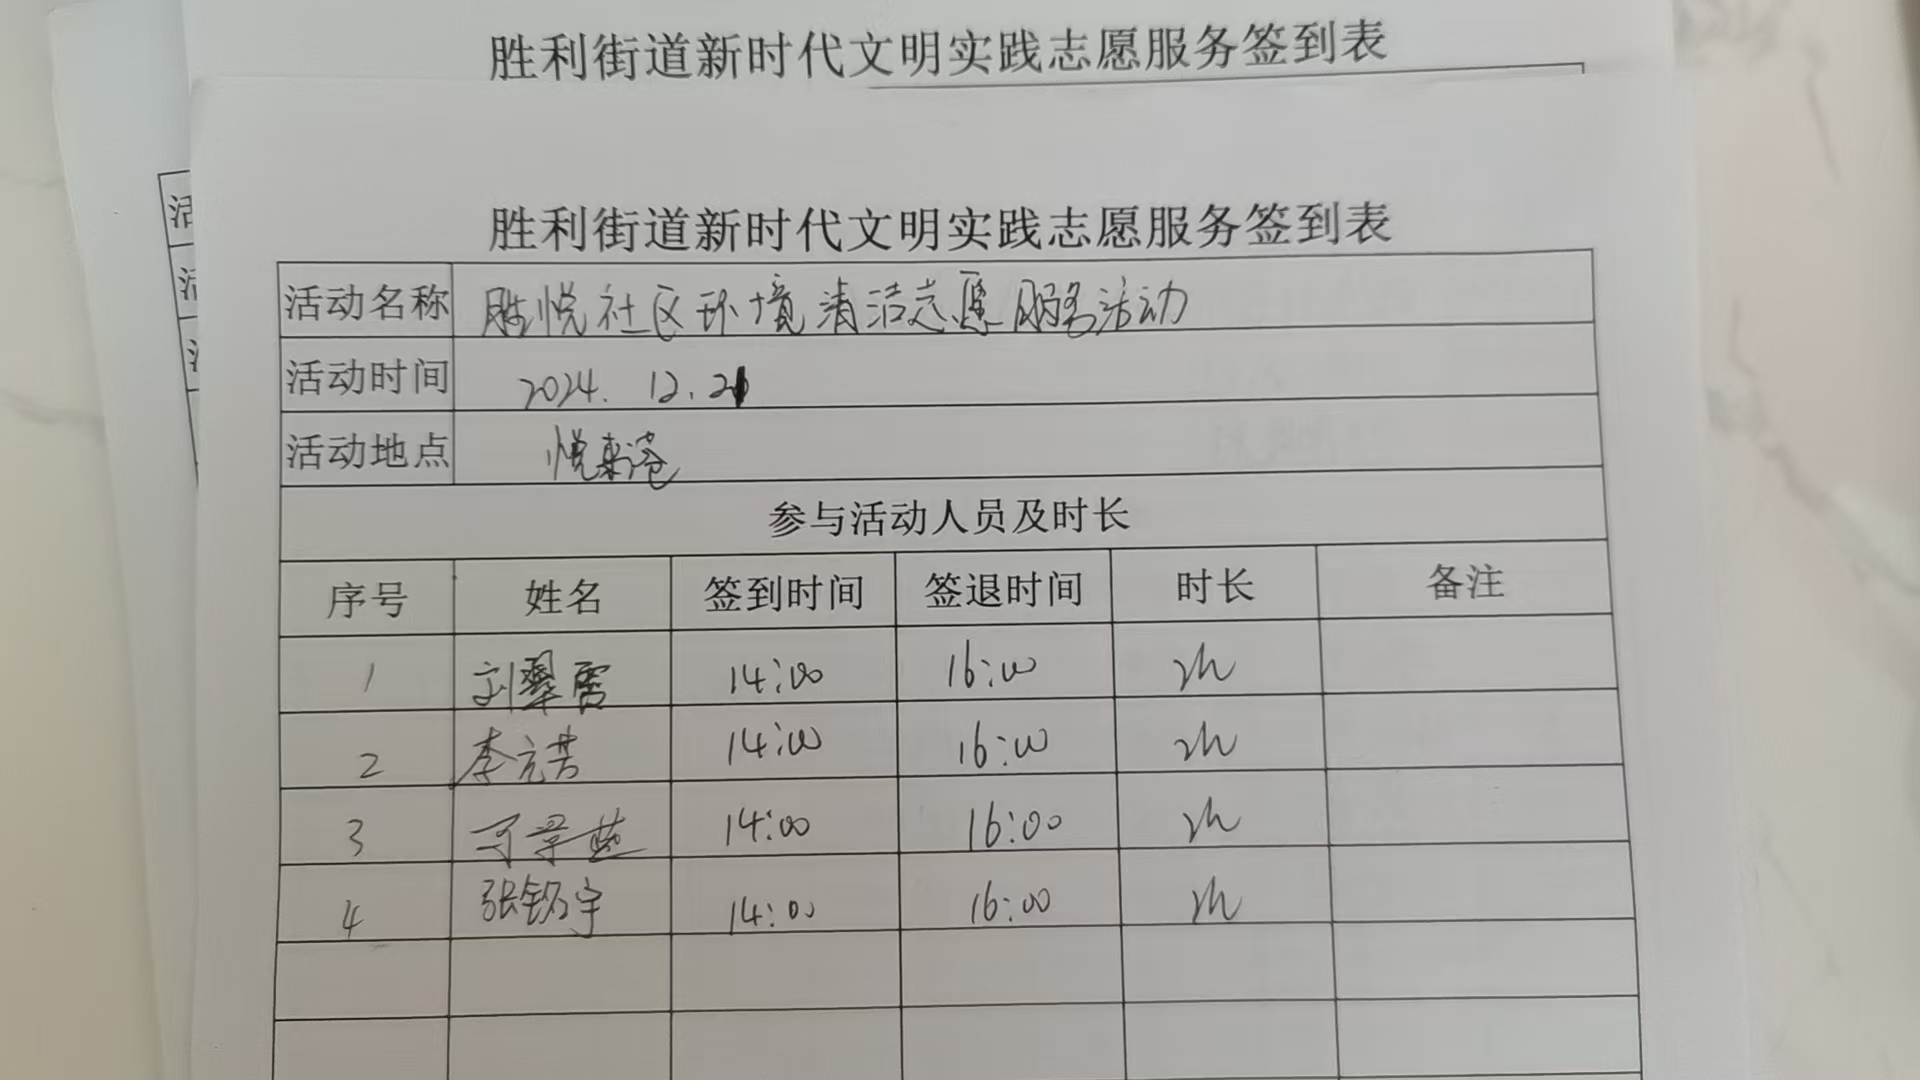 胜利街道新时代文明实践志愿服务签到表
活
活
胜利街道新时代文明实践志愿服务签到表
活动名称 胜悦社区环境清洁志愿服务活动
活动时间 2024. 12. 21
活动地点 悦来湾
参与活动人员及时长
序号 姓名 签到时间 签退时间 时长 备注
1 刘翠雷 14:00 16:00 2h
2 李元芳 14:00 16:00 2h
3 14:00 16:00 2h
4 张铭宇 14:00 16:00 2h